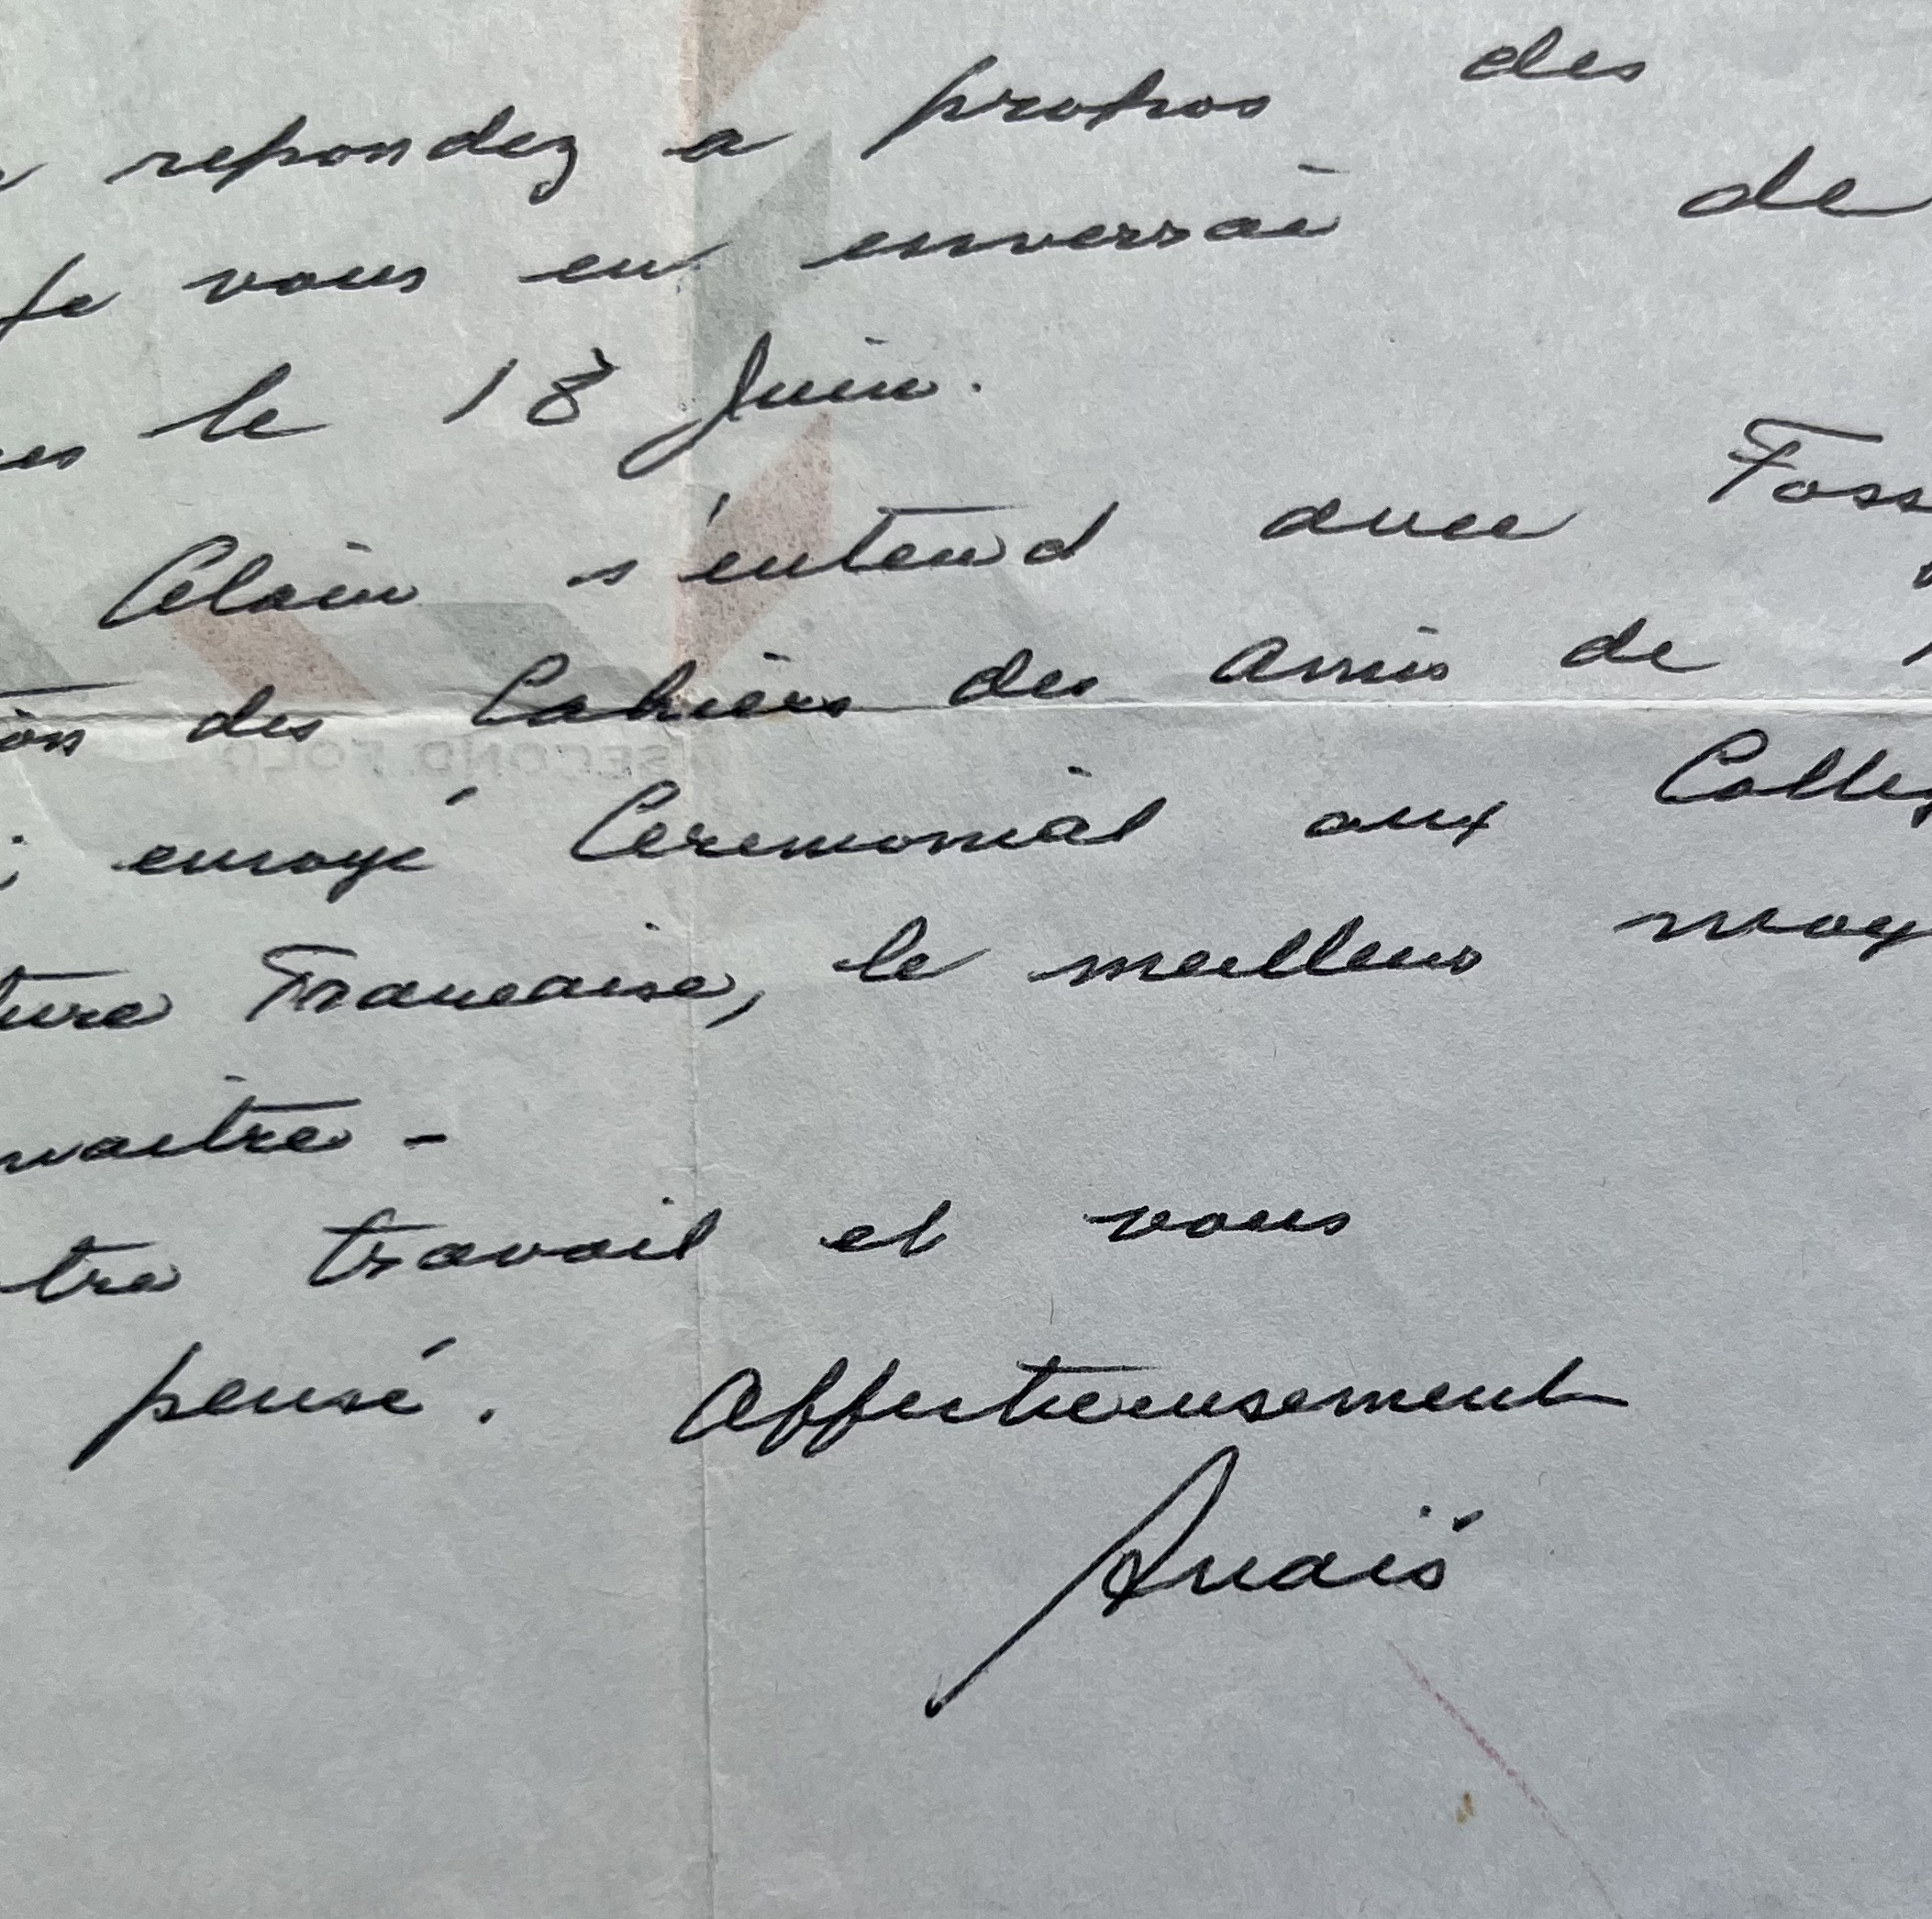 repondez a propos des
Je vous en enverrai de
es le 18 Juin.
Alain s'entend avec Foss
on des Cahiers des Amis de
; envoyé Ceremonial aux Colleg
ture Francaise, le meilleur moy
naitre -
tre travail et vous
pensé. Affectueusement
Anaïs
SECOND FOLD